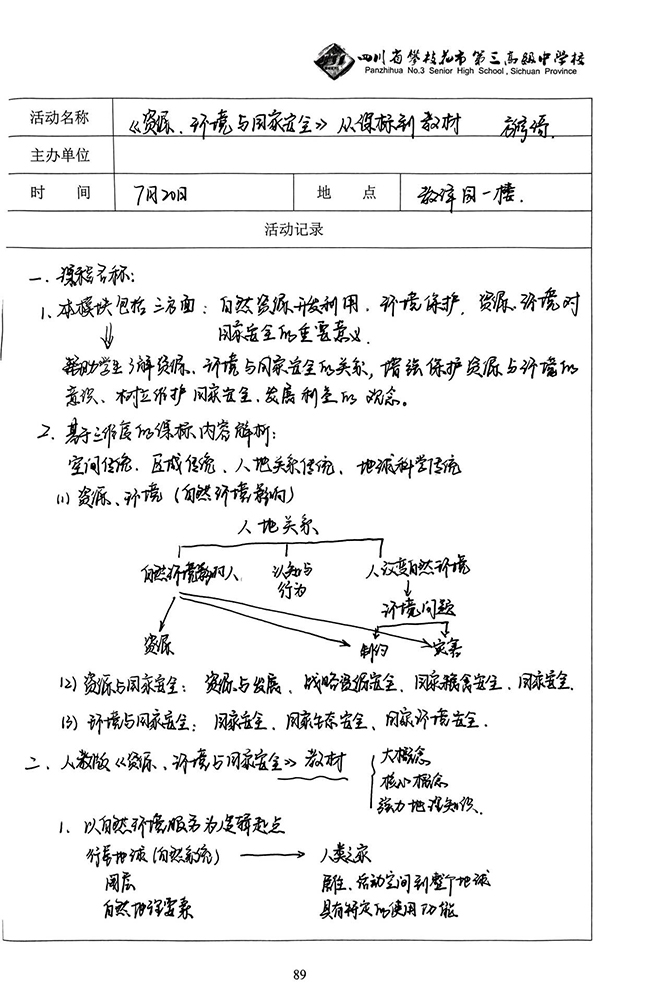 四川省攀枝花市第三高级中学校
Panzhihua No.3 Senior High School, Sichuan Province
活动名称 《资源、环境与国家安全》从课标到教材
主办单位
时 间 7月20日 地 点 教津园一楼.
活动记录
一. 课程名称:
1. 本模块包括三方面: 自然资源开发利用. 环境保护. 资源、环境对
国家安全的重要意义.
帮助学生了解资源、环境与国家安全的关系, 增强保护资源与环境的
意识、树立维护国家安全、发展利益的观念。
2. 基于三维度的课标内容解析:
空间传统. 区域传统、人地关系传统、地球科学传统
(1) 资源、环境 (自然环境影响)
人地关系
自然环境影响人 认知与 人改变自然环境
行为
环境问题
资源 制约 灾害
(2) 资源与国家安全: 资源与发展、战略资源安全、国家粮食安全、国家安全.
(3) 环境与国家安全: 国家安全、国家生态安全、国家环境安全.
二. 人教版《资源、环境与国家安全》教材 大概念
核心概念
强力地理知识.
1. 以自然环境服务为逻辑起点
行星地球 (自然系统) 人类之家
圈层 居住、活动空间到整个地球
自然地理要素 具有特定的使用功能
89